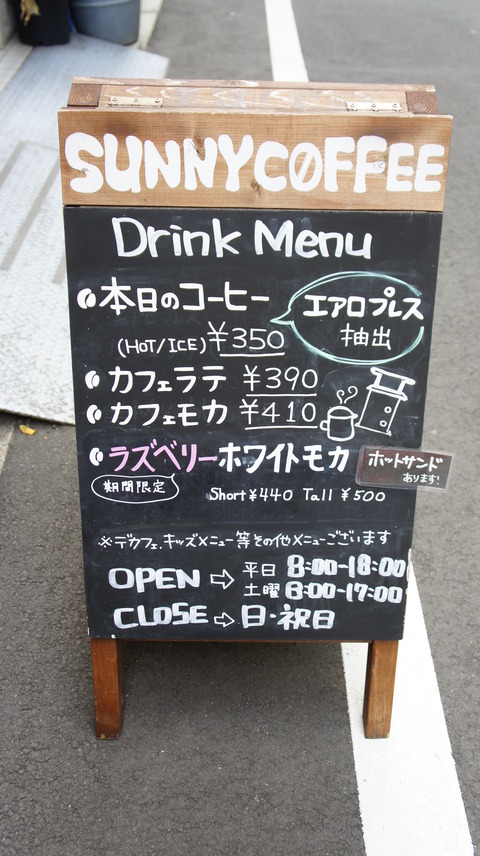 SUNNYCOFFEE
Drink Menu
本日のコーヒー
エアロプレス
抽出
(HOT/ICE) ¥350
カフェラテ ¥390
カフェモカ ¥410
ラズベリーホワイトモカ
ホットサンド
あります!
期間限定
Short ¥440 Tall ¥500
※デカフェ、キッズメニュー等その他メニューございます
OPEN ⇨ 平日 8:00-18:00
土曜 8:00-17:00
CLOSE ⇨ 日・祝日